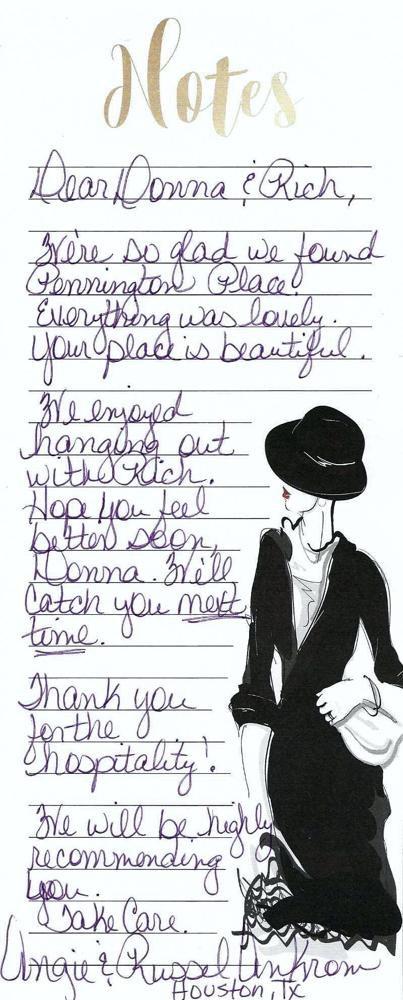 Notes
Dear Donna & Rich,
We're so glad we found
Pennington Place.
Everything was lovely.
Your place is beautiful.
We enjoyed
hanging out
with Rich.
Hope you feel
better soon,
Donna. We'll
catch you next
time.
Thank you
for the
hospitality!
We will be highly
recommending
you.
Take Care.
Angie & Russel Ankrom
Houston, Tx